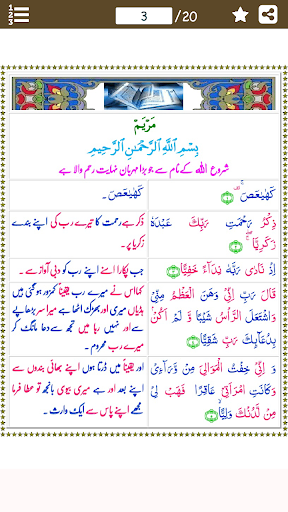 1
2
3
3 /20
مَرْيَمْ
بِسْمِ اللَّهِ الرَّحْمَٰنِ الرَّحِيمِ
شروع اللہ کے نام سے جو بڑا مہربان نہایت رحم والا ہے
كٓهٰيٰعٓصٓ ۚ ۝١
کٓھٰیٰعٓصٓ۔
ذِكْرُ رَحْمَتِ رَبِّكَ عَبْدَهٗ
زَكَرِيَّا ۝٢
ذکر ہے رحمت کا تیرے رب کی اپنے بندے
زکریا پر۔
إِذْ نَادٰى رَبَّهٗ نِدَآءً خَفِيًّا ۝٣
جب پکارا اسنے اپنے رب کو دبی آواز سے۔
قَالَ رَبِّ إِنِّي وَهَنَ الْعَظْمُ مِنِّي
وَاشْتَعَلَ الرَّأْسُ شَيْبًا وَّ لَمْ أَكُنْ
بِدُعَآئِكَ رَبِّ شَقِيًّا ۝٤
کہا اس نے میرے رب یقیناً کمزور ہو گئی ہیں
ہڈیاں میری اور بھڑک اٹھا ہے میرا سر بڑھاپے
سے اور نہیں رہا میں تجھ سے دعا مانگ کر
میرے رب محروم۔
وَ إِنِّي خِفْتُ الْمَوَالِيَ مِنْ وَّرَآءِيْ
وَكَانَتِ امْرَأَتِيْ عَاقِرًا فَهَبْ لِيْ
مِنْ لَّدُنْكَ وَلِيًّا ۝٥
اور یقیناً میں ڈرتا ہوں اپنے بھائی بندوں سے
اپنے بعد اور ہے میری بیوی بانجھ تو عطا فرما
مجھے اپنے پاس سے ایک وارث۔